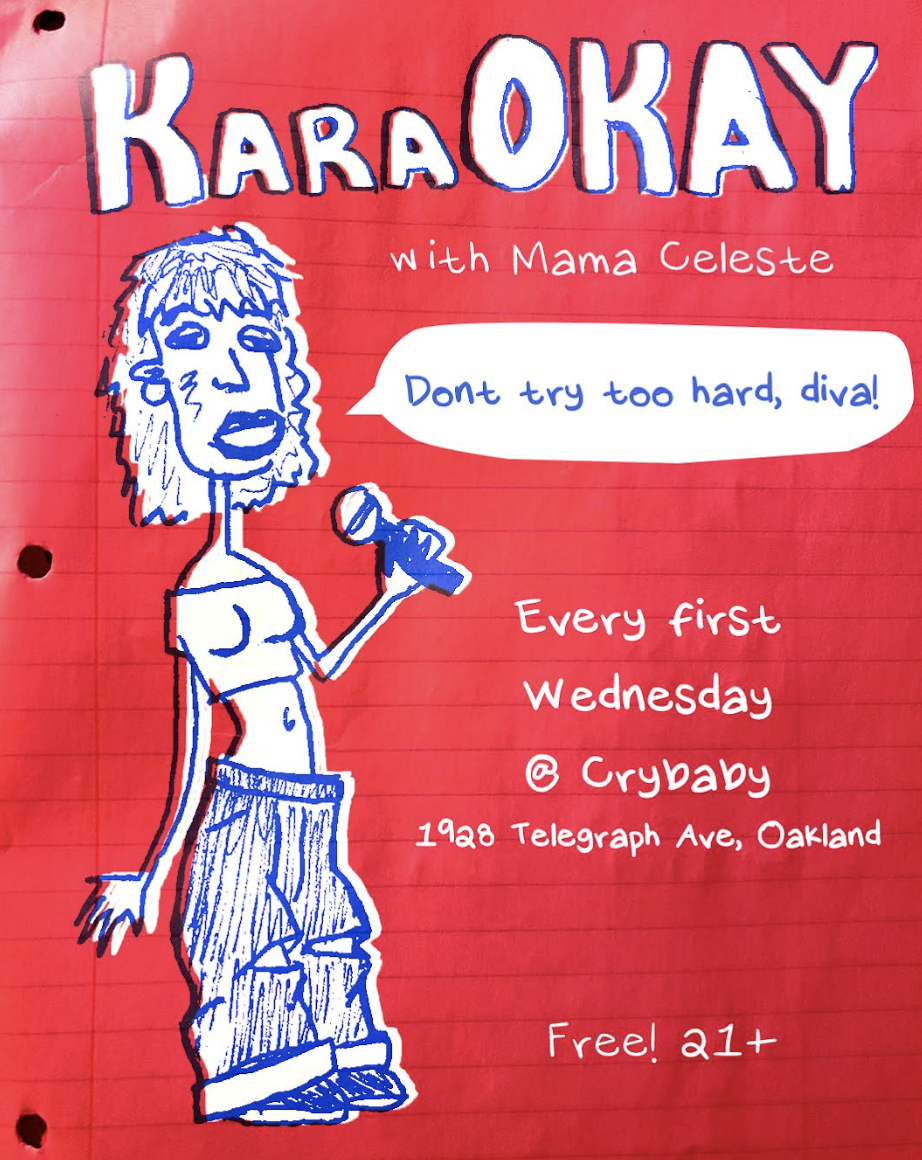 KARAOKAY
with Mama Celeste
Dont try too hard, diva!
Every first
Wednesday
@ Crybaby
1928 Telegraph Ave, Oakland
Free! 21+